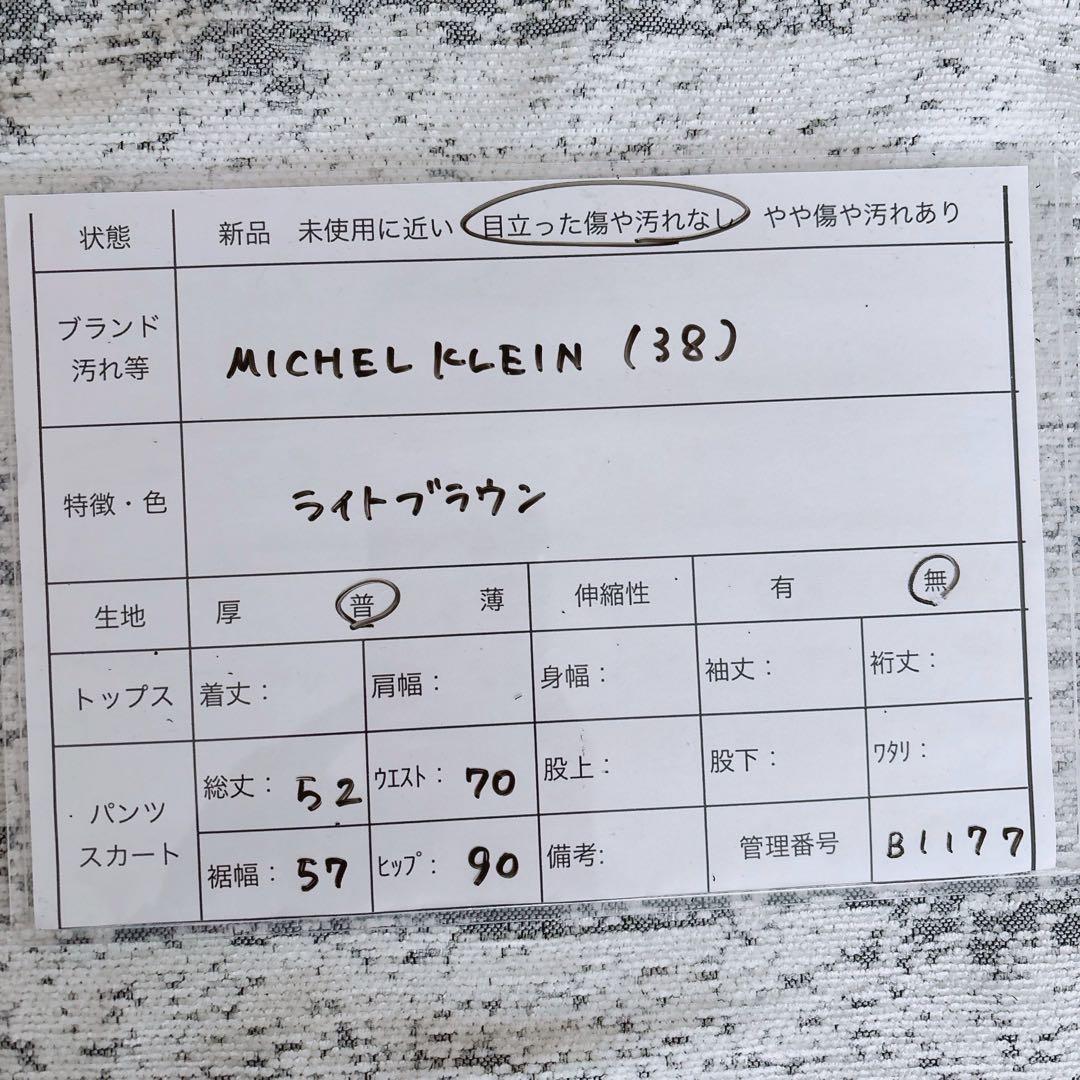 状態 新品 未使用に近い 目立った傷や汚れなし やや傷や汚れあり
ブランド
汚れ等
MICHEL KLEIN (38)
特徴・色 ライトブラウン
生地 厚 普 薄 伸縮性 有 無
トップス 着丈: 肩幅: 身幅: 袖丈: 裄丈:
パンツ
スカート
総丈: 52 ウエスト: 70 股上: 股下: ワタリ:
裾幅: 57 ヒップ: 90 備考: 管理番号 B1177